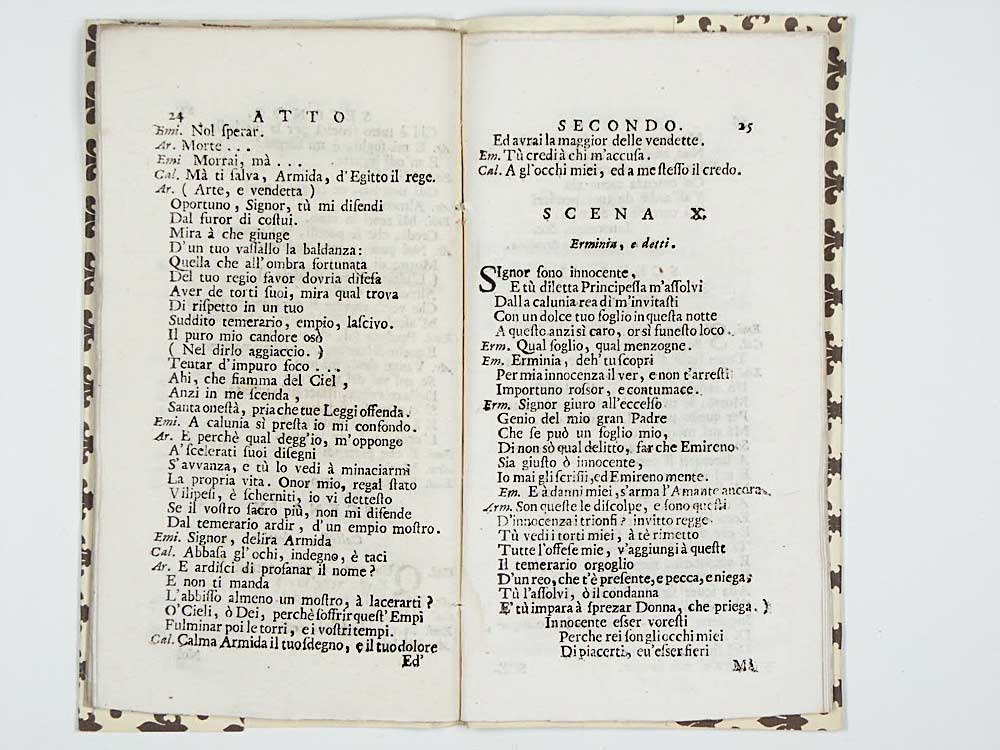 24 ATTO
Emi. Nol sperar.
Ar. Morte . . .
Emi Morrai, mà . . .
Cal. Mà ti salva, Armida, d'Egitto il rege.
Ar. ( Arte, e vendetta )
Oportuno, Signor, tù mi difendi
Dal furor di costui.
Mira à che giunge
D'un tuo vassallo la baldanza:
Quella che all'ombra fortunata
Del tuo regio favor dovria difesa
Aver de torti suoi, mira qual trova
Di rispetto in un tuo
Suddito temerario, empio, lascivo.
Il puro mio candore osò
( Nel dirlo aggiaccio. )
Tentar d'impuro foco . . .
Ahi, che fiamma del Ciel,
Anzi in me scenda,
Santa onestà, pria che tue Leggi offenda.
Emi. A calunia sì presta io mi confondo.
Ar. E perchè qual degg'io, m'oppongo
A' scelerati suoi disegni
S'avvanza, e tù lo vedi à minaciarmi
La propria vita. Onor mio, regal stato
Vilipesi, è scherniti, io vi dettesto
Se il vostro sacro più, non mi difende
Dal temerario ardir, d'un empio mostro.
Emi. Signor, delira Armida
Cal. Abbassa gl'ochi, indegno, è taci
Ar. E ardisci di profanar il nome?
E non ti manda
L'abbisso almeno un mostro, à lacerarti?
O' Cieli, ò Dei, perchè soffrir quest' Empi
Fulminar poi le torri, e i vostri tempi.
Cal. Calma Armida il tuo sdegno, e il tuo dolore
Ed'
SECONDO. 25
Ed avrai la maggior delle vendette.
Em. Tù credi à chi m'accusa.
Cal. A gl'occhi miei, ed a me stesso il credo.
SCENA X.
Erminia, e detti.
SIgnor sono innocente,
E tù diletta Principessa m'assolvi
Dalla calunia rea di m'invitasti
Con un dolce tuo foglio in questa notte
A questo anzi sì caro, or sì funesto loco.
Erm. Qual foglio, qual menzogne.
Em. Erminia, deh' tu scopri
Per mia innocenza il ver, e non t'arresti
Importuno rossor, e contumace.
Erm. Signor giuro all'eccelso
Genio del mio gran Padre
Che se può un foglio mio,
Di non sò qual delitto, far che Emireno
Sia giusto ò innocente,
Io mai gli scrissi, ed Emireno mente.
Em. E à danni miei, s'arma l'Amante ancora.
Arm. Son queste le discolpe, e sono questi
D'innocenza i trionfi? invitto regge.
Tù vedi i torti miei, à tè rimetto
Tutte l'offese mie, v'aggiungi à queste
Il temerario orgoglio
D'un reo, che t'è presente, e pecca, e niega;
Tù l'assolvi, ò il condanna
E' tù impara à sprezar Donna, che priega. )
Innocente esser voresti
Perche rei son gli occhi miei
Di piacerti, eu'esser fieri
Mà